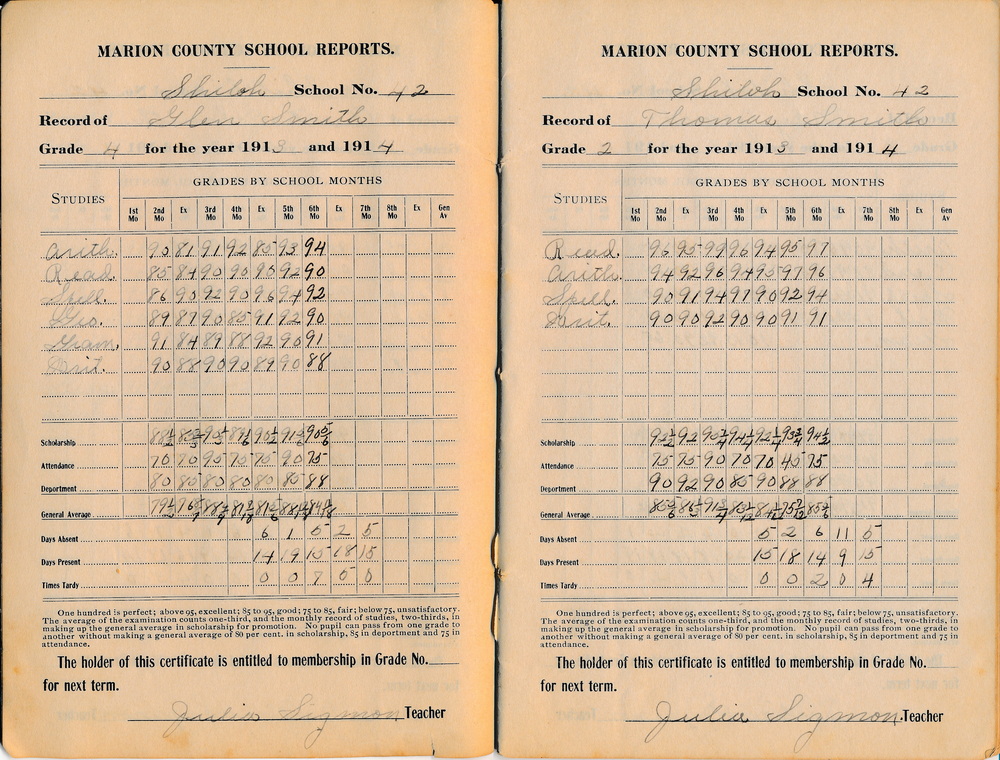 MARION COUNTY SCHOOL REPORTS.
Shiloh School No. 42
Record of Glen Smith
Grade 4 for the year 1913 and 1914
STUDIES
GRADES BY SCHOOL MONTHS
1st Mo 2nd Mo Ex 3rd Mo 4th Mo Ex 5th Mo 6th Mo Ex 7th Mo 8th Mo Ex Gen Av
Arith. 90 81 91 92 85 93 94
Read. 85 84 90 90 80 92 90
Spell. 86 90 92 90 96 94 92
Geo. 89 87 90 85 91 92 90
Gram. 91 84 89 88 92 90 91
Writ. 90 88 90 90 89 90 88
Scholarship
Attendance 70 70 95 75 75 90 75
Department 80 85 80 80 80 85 88
General Average
Days Absent 6 1 5 2 5
Days Present 14 19 15 18 15
Times Tardy 0 0 7 0 0
One hundred is perfect; above 95, excellent; 85 to 95, good; 75 to 85, fair; below 75, unsatisfactory.
The average of the examination counts one-third, and the monthly record of studies, two-thirds, in
making up the general average in scholarship for promotion. No pupil can pass from one grade to
another without making a general average of 80 per cent. in scholarship, 85 in deportment and 75 in
attendance.
The holder of this certificate is entitled to membership in Grade No.
for next term.
Julia Sigmon Teacher
MARION COUNTY SCHOOL REPORTS.
Shiloh School No. 42
Record of Thomas Smith
Grade 2 for the year 1913 and 1914
STUDIES
GRADES BY SCHOOL MONTHS
1st Mo 2nd Mo Ex 3rd Mo 4th Mo Ex 5th Mo 6th Mo Ex 7th Mo 8th Mo Ex Gen Av
Read. 96 95 99 96 94 95 97
Arith. 94 92 96 94 95 97 96
Spell. 90 91 94 97 90 92 94
Writ. 90 90 92 90 90 91 91
Scholarship
Attendance 75 75 90 70 70 45 75
Department 90 92 90 85 90 88 88
General Average
Days Absent 5 2 6 11 5
Days Present 15 18 14 9 15
Times Tardy 0 0 2 0 4
One hundred is perfect; above 95, excellent; 85 to 95, good; 75 to 85, fair; below 75, unsatisfactory.
The average of the examination counts one-third, and the monthly record of studies, two-thirds, in
making up the general average in scholarship for promotion. No pupil can pass from one grade to
another without making a general average of 80 per cent. in scholarship, 85 in deportment and 75 in
attendance.
The holder of this certificate is entitled to membership in Grade No.
for next term.
Julia Sigmon Teacher